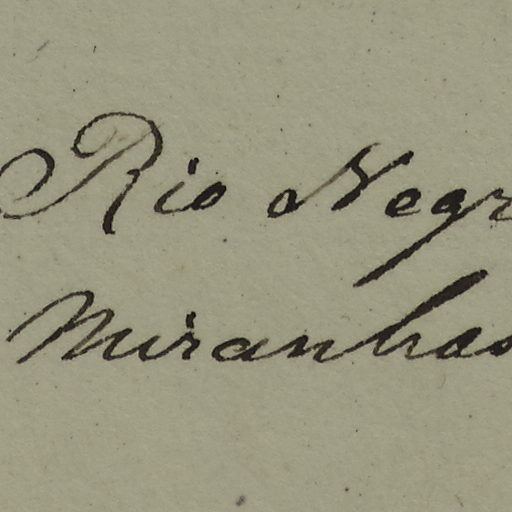 Rio Negr
Miranhas